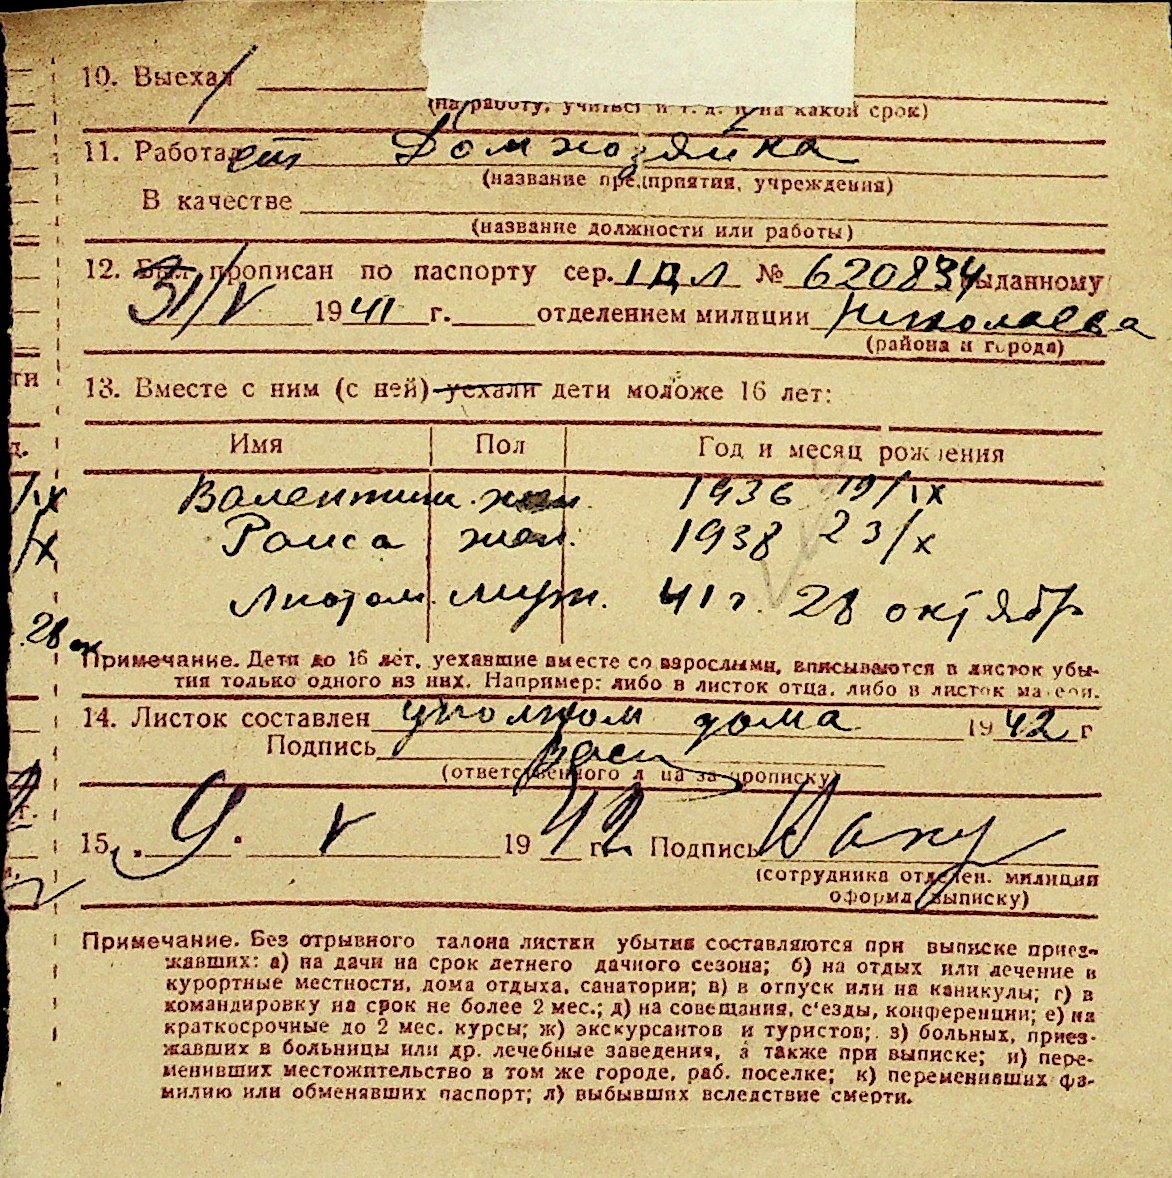 10. Выехал
(на работу, учиться и т. д. и на какой срок)
11. Работает Домхозяйка
(название предприятия, учреждения)
В качестве
(название должности или работы)
12. Был прописан по паспорту сер. I ДЛ № 620834 выданному
31/V 1941 г. отделением милиции Николаева
(района и города)
13. Вместе с ним (с ней) уехали дети моложе 16 лет:
Имя Пол Год и месяц рождения
/IX Валентин. жен. 1936 19/IX
/X Раиса жен. 1938 23/X
Анатом. муж. 41 г. 28 октябр
28 ок
Примечание. Дети до 16 лет, уехавшие вместе со взрослыми, вписываются в листок убы-
тия только одного из них. Например: либо в листок отца, либо в листок матери.
14. Листок составлен уполном дома 1942 г
Подпись
(ответственного лица за прописку)
15. „ 9 " V 1942 г. Подпись
(сотрудника отделен. милиции
оформл. выписку)
Примечание. Без отрывного талона листки убытия составляются при выписке приез-
жавших: а) на дачи на срок летнего дачного сезона; б) на отдых или лечение в
курортные местности, дома отдыха, санатории; в) в отпуск или на каникулы; г) в
командировку на срок не более 2 мес.; д) на совещания, с'езды, конференции; е) на
краткосрочные до 2 мес. курсы; ж) экскурсантов и туристов; з) больных, приез-
жавших в больницы или др. лечебные заведения, а также при выписке; и) пере-
менивших местожительство в том же городе, раб. поселке; к) переменивших фа-
милию или обменявших паспорт; л) выбывших вследствие смерти.